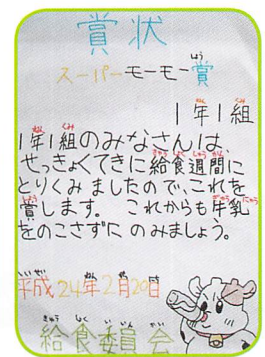 賞状
スーパーモーモー賞
1年1組
1年1組のみなさんは、
せっきょくてきに給食週間に
とりくみましたので、これを
賞します。これからも牛乳
をのこさずにのみましょう。
平成24年2月20日
給食委員会